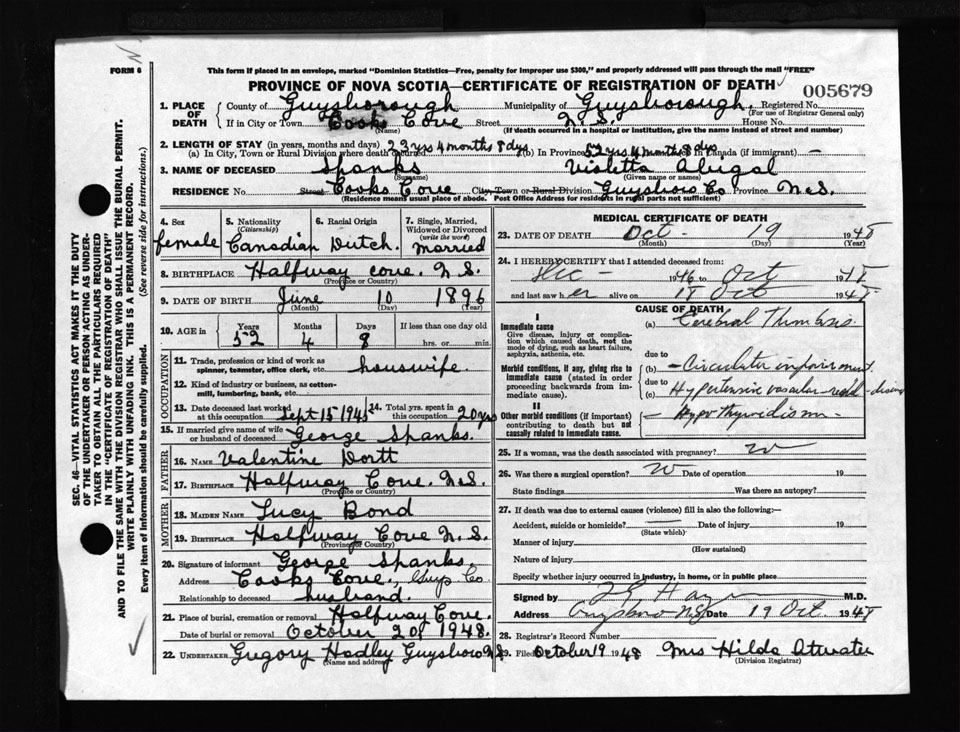 FORM 6
This form if placed in an envelope, marked "Dominion Statistics—Free, penalty for improper use $300," and properly addressed will pass through the mail "FREE"
PROVINCE OF NOVA SCOTIA—CERTIFICATE OF REGISTRATION OF DEATH
005679
1. PLACE OF DEATH { County of Guysborough Municipality of Guysborough. Registered No.
(For use of Registrar General only)
If in City or Town Cooks Cove Street N.S. House No.
(Name) (If death occurred in a hospital or institution, give the name instead of street and number)
2. LENGTH OF STAY (in years, months and days)
(a) In City, Town or Rural Division where death occurred 23 yrs 4 months 8 dys (b) In Province 52 yrs 4 months 8 dys Canada (if immigrant) —
3. NAME OF DECEASED Spanks Violetta Abigal
(Surname) (Given name or names)
RESIDENCE No. Street Cooks Cove City Town or Rural Division Guysboro Co Province N.S.
(Residence means usual place of abode. Post Office Address for residents in rural parts not sufficient)
4. Sex female
5. Nationality (Citizenship) Canadian
6. Racial Origin Dutch.
7. Single, Married, Widowed or Divorced (write the word) Married
8. BIRTHPLACE Halfway cove. N.S.
(Province or Country)
9. DATE OF BIRTH June 10 1896
(Month) (Day) (Year)
10. AGE in Years 52 Months 4 Days 8 If less than one day old hrs. or min.
OCCUPATION
11. Trade, profession or kind of work as spinner, teamster, office clerk, etc. housewife.
12. Kind of industry or business, as cotton-mill, lumbering, bank, etc.
13. Date deceased last worked at this occupation Sept 15 1945 14. Total yrs. spent in this occupation 20 yrs
15. If married give name of wife or husband of deceased George Spanks.
FATHER
16. NAME Valentine Dortt
17. BIRTHPLACE Halfway Cove. N.S.
(Province or Country)
MOTHER
18. MAIDEN NAME Lucy Bond
19. BIRTHPLACE Halfway Cove N.S.
(Province or Country)
20. Signature of informant George Spanks
Address Cooks Cove, Guys Co.
Relationship to deceased husband.
21. Place of burial, cremation or removal Halfway Cove.
Date of burial or removal October 20 1948.
22. UNDERTAKER Gregory Hadley Guysboro N.S.
(Name and address)
MEDICAL CERTIFICATE OF DEATH
23. DATE OF DEATH Oct - 19 1948
(Month) (Day) (Year)
24. I HEREBY CERTIFY that I attended deceased from:
Dec 1946 to Oct 1948
and last saw her alive on 18 Oct 1948
CAUSE OF DEATH
I
Immediate cause
Give disease, injury or complication which caused death, not the mode of dying, such as heart failure, asphyxia, asthenia, etc.
(a) Cerebral Thrombosis.
due to
Morbid conditions, if any, giving rise to immediate cause (stated in order proceeding backwards from immediate cause).
(b) – Circulatory impairment
due to
(c) Hypertensive vascular-renal disease
II
Other morbid conditions (if important) contributing to death but not causally related to immediate cause.
– Hypothyroidism –
25. If a woman, was the death associated with pregnancy?
26. Was there a surgical operation? Date of operation 19
State findings Was there an autopsy?
27. If death was due to external causes (violence) fill in also the following:—
Accident, suicide or homicide? — Date of injury 19
(State which)
Manner of injury
(How sustained)
Nature of injury
Specify whether injury occurred in industry, in home, or in public place
Signed by M.D.
Address Guysboro N.S. Date 19 Oct 1948
28. Registrar's Record Number
29. Filed October 19 1948 Mrs Hilda Atwater
(Division Registrar)
SEC. 46—VITAL STATISTICS ACT MAKES IT THE DUTY
OF THE UNDERTAKER OR PERSON ACTING AS UNDER-
TAKER TO OBTAIN ALL THE PARTICULARS REQUIRED
IN THE "CERTIFICATE OF REGISTRATION OF DEATH"
AND TO FILE THE SAME WITH THE DIVISION REGISTRAR WHO SHALL ISSUE THE BURIAL PERMIT.
WRITE PLAINLY WITH UNFADING INK. THIS IS A PERMANENT RECORD.
Every item of information should be carefully supplied. (See reverse side for instructions.)